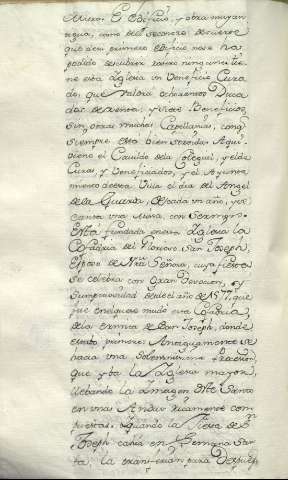 nuevo. El edificio, y obra muy an
tigua, como dello se conoce
que deste primero edificio no se ha
podido descubrir rastro ninguno. tie
ne esta Iglesia un Beneficio Cura
do, que valdra ochocientos Duca
dos de renta, y siete Beneficios,
sin otras muchas Capellanias, conq
siempre esta bien servida. Aqui
viene el Cavildo de la Colegial, y el de
Curas y Beneficiados, y el Ayunta
miento de esta Villa el dia del Angel
de la Guarda, de cada un año, y se
canta una Missa, con Sermon.
Està fundada en esta Iglesia la
Cofadria del Glorioso San Joseph,
Esposo de Ntrâ Señora, cuya fiesta
se celebra con Gran Devocion, y
Sumptuosidad desde el año de 1577, que
fue en el que se mudò esta Cofadria,
de la ermita de San Joseph, donde
estubo primero. Antiguamente se
hacia una Solemnissima Procesion,
que yba la Iglesia mayor,
llebando la Imagen deste Santo
en unas Andas ricamente com
puestas. Quando la Fiesta de Sn
Joseph cahia en Semana San
ta, la transferian para despues